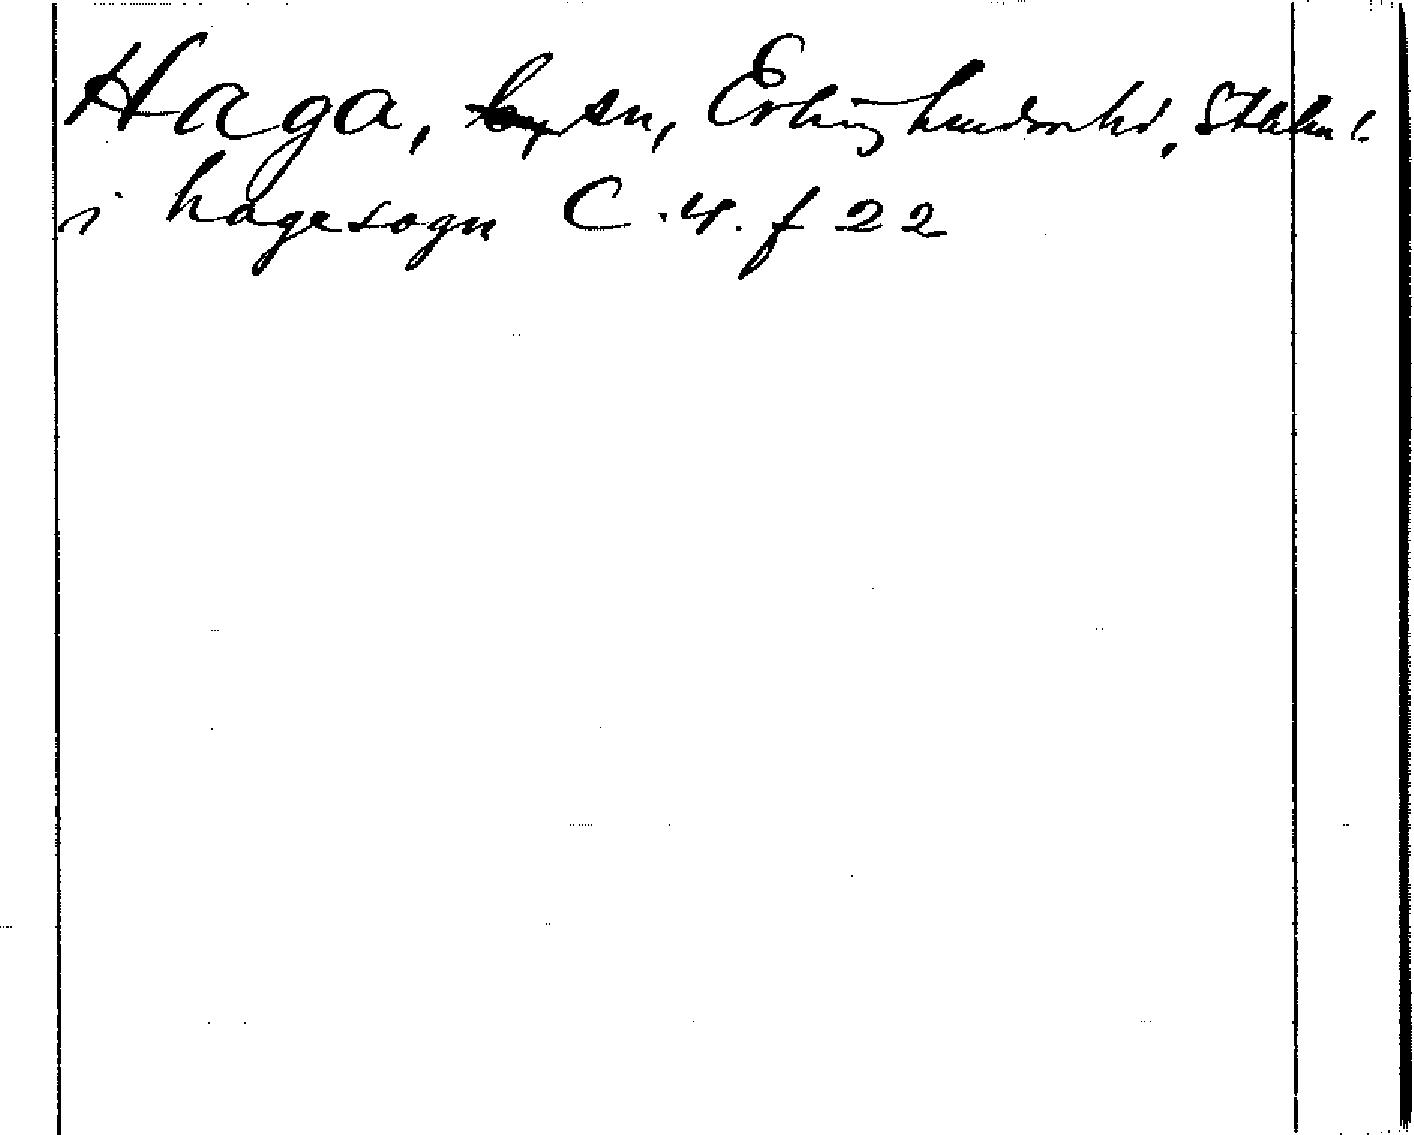 Haga, sn, Erlinghundra hd, Sthlm l.
i hagesogn C. 4. f 22